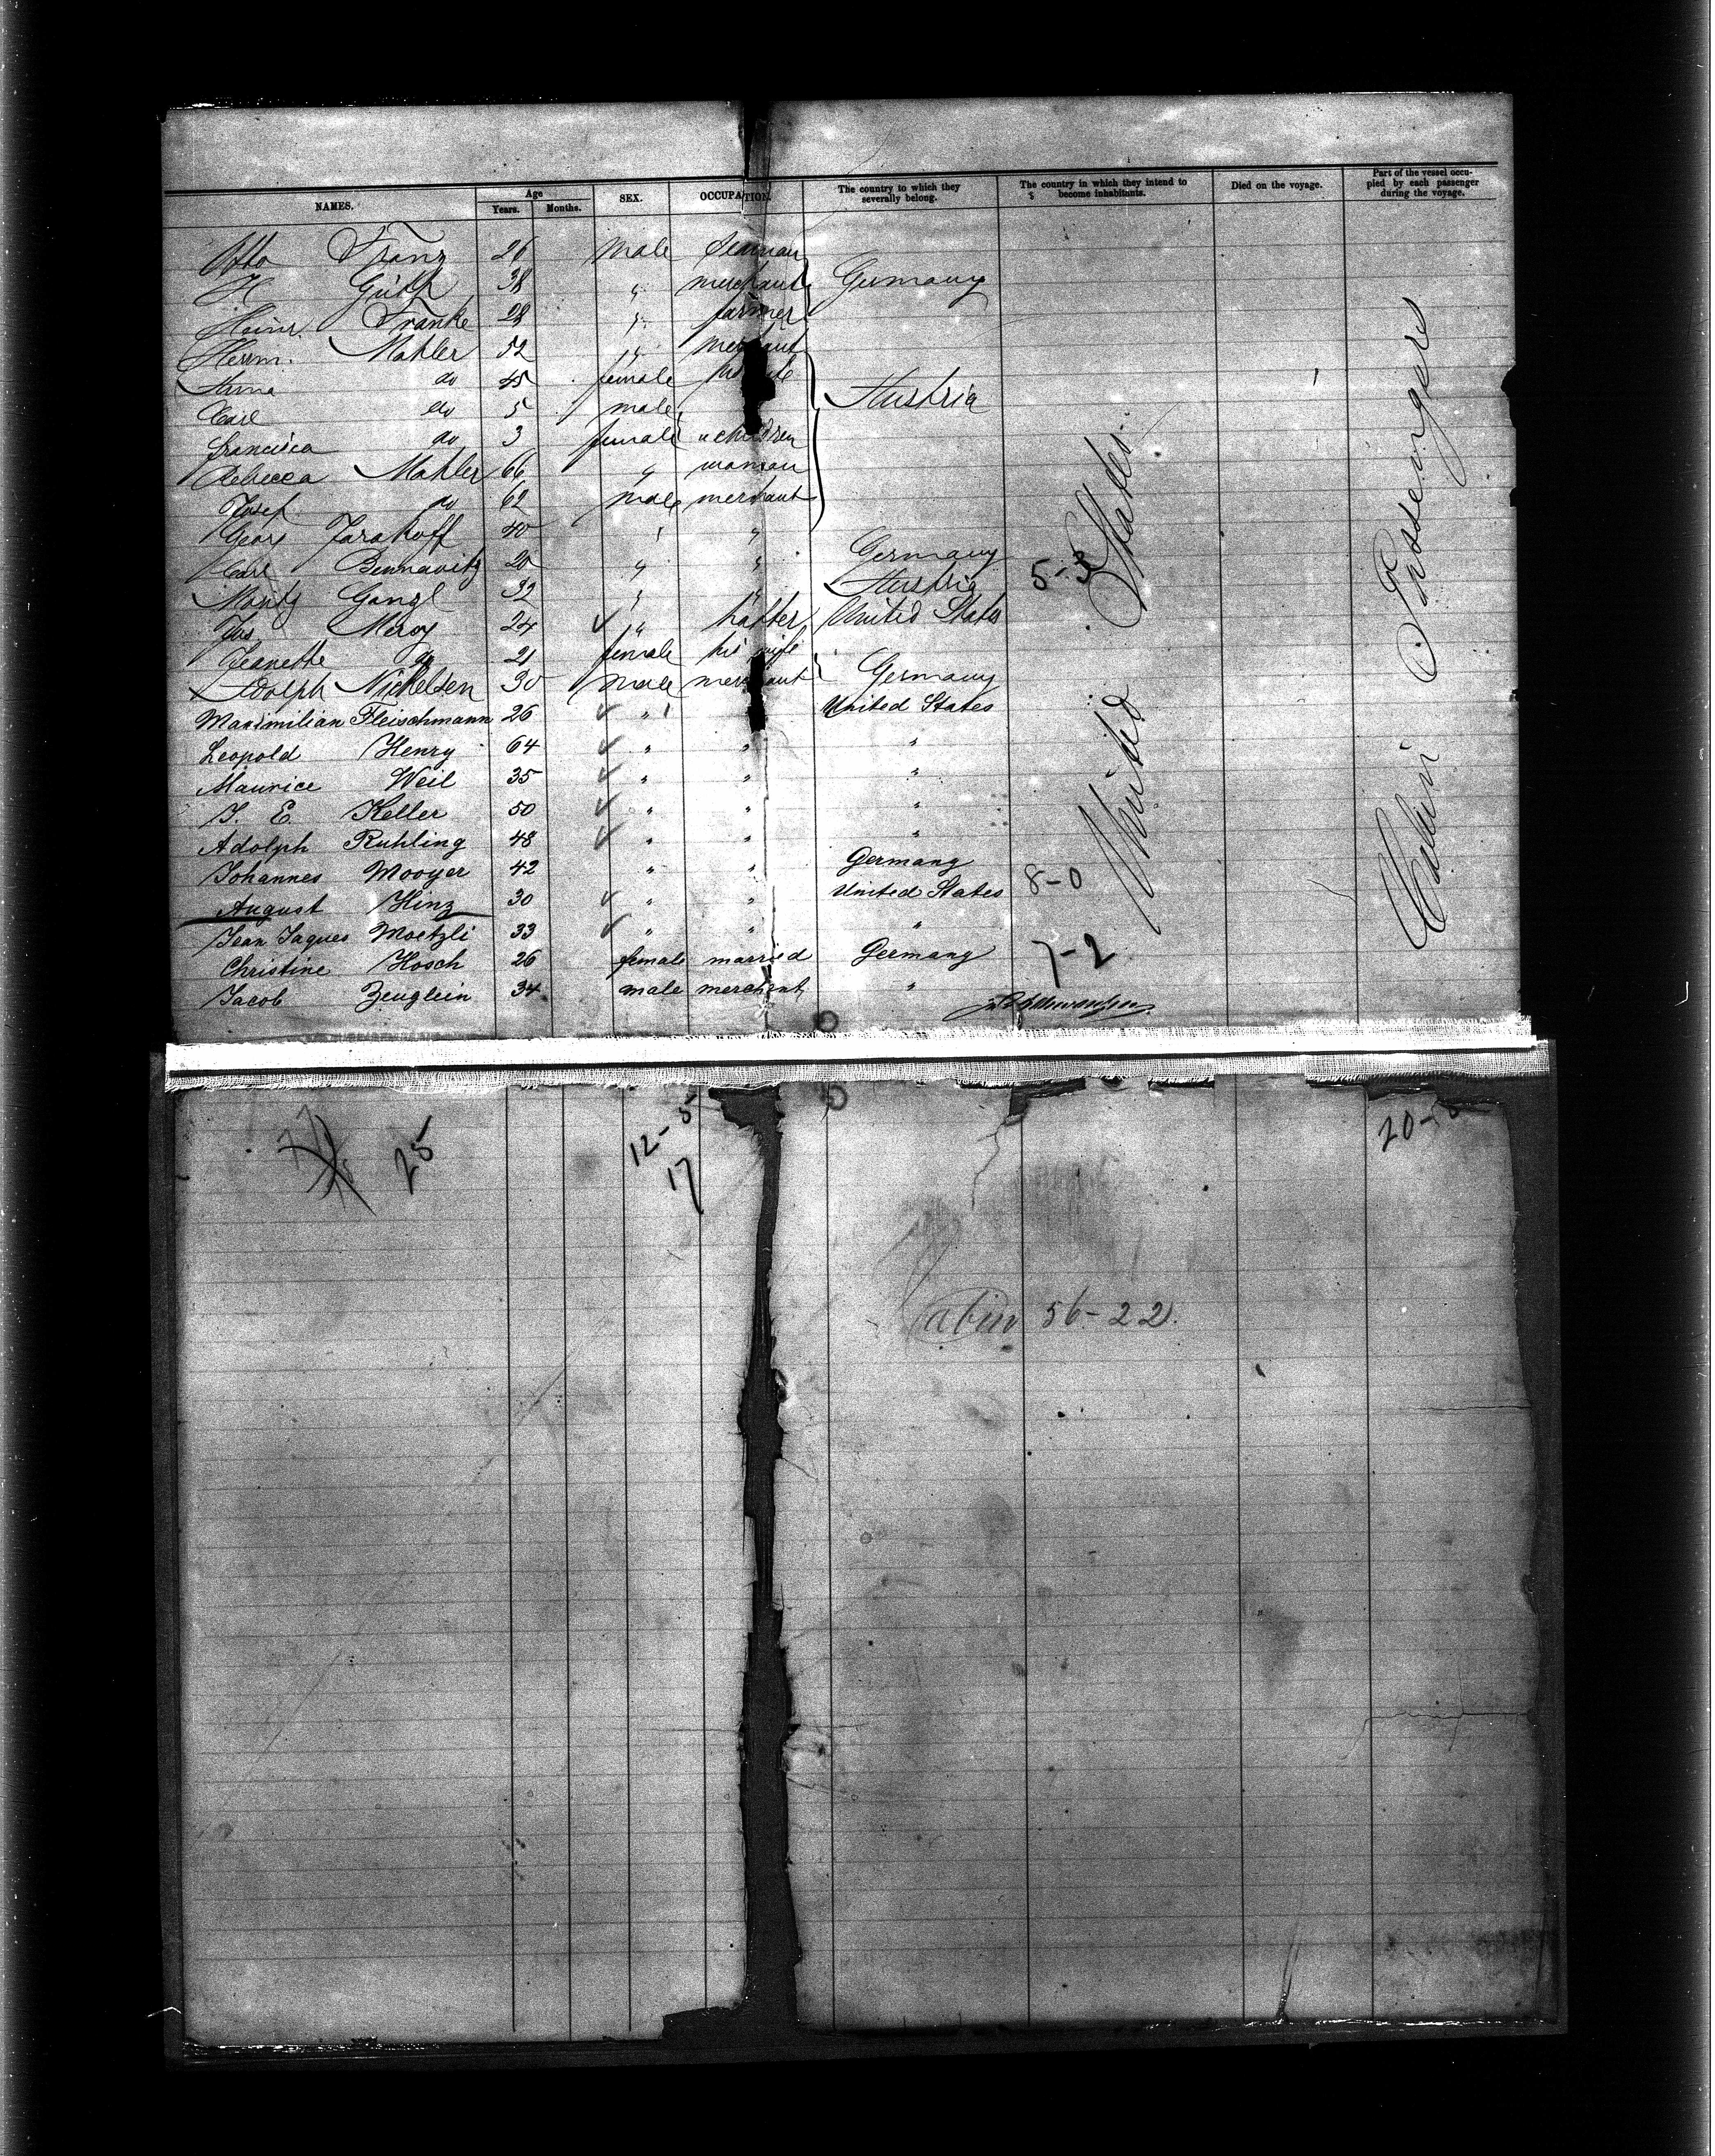 NAMES. Age Years. Months. SEX. OCCUPATION. The country to which they severally belong. The country in which they intend to become inhabitants. Died on the voyage. Part of the vessel occupied by each passenger during the voyage.
Otto Franz 26 male seaman
H Güth 38 " merchant Germany
Heinr Franke 28 " farmer
Herrm. Mahler 52 " merchant
Anna do 45 female
Carl do 5 male Austria
Francisca do 3 female " children
Rebecca Mahler 66 " woman
Josef do 62 male merchant
Georg 40 " "
Carl Bennavitz 20 " " Germany
Moritz Gangl 32 " " Austria 5-3
Jos Meroy 24 ✓ " hatter United States
Jeanette do 21 female his wife
Adolph Nickelsen 30 male merchant Germany
Maximilian Fleischmann 26 ✓ " United States
Leopold Henry 64 ✓ " " "
Maurice Weil 35 ✓ " " "
J. E. Keller 50 ✓ " " "
Adolph Ruhling 48 ✓ " " "
Johannes Mooyer 42 " " Germany
August Hinz 30 ✓ " " United States 8-0
Jean Jaques Moetzli 33 ✓ " " "
Christine Hosch 26 female married Germany 7-2
Jacob Zeuglein 34 male merchant "
United States.
Cabin Passengers
25 12-5 20-
17
Cabin 56-22.